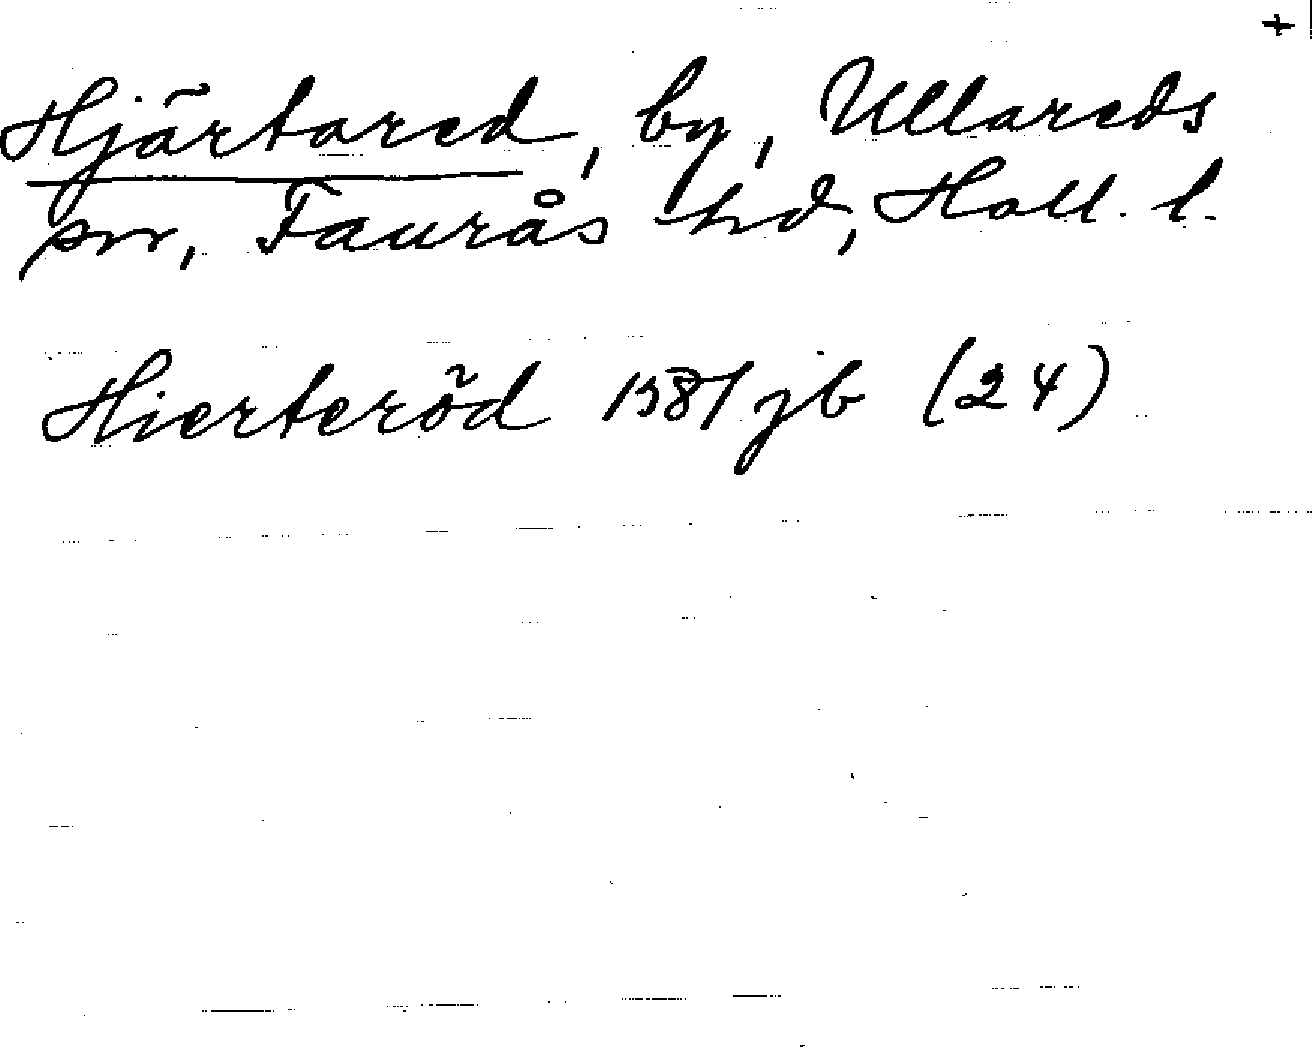 +
Hjärtared, by, Ullareds
sn, Faurås hd, Hall. l.
Hierteröd 1581 jb (24)